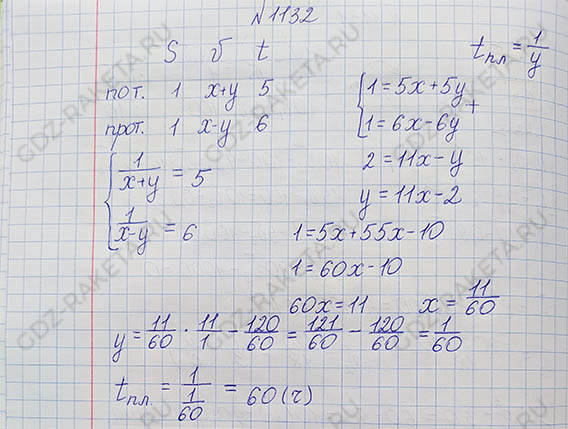 №1132
S υ t
tпл = 1/y
пот. 1 x+y 5
прот. 1 x-y 6
{ 1/(x+y) = 5
1/(x-y) = 6
{ 1=5x+5y
1=6x-6y +
2=11x-y
y=11x-2
1=5x+55x-10
1=60x-10
60x=11 x=11/60
y=11/60 · 11/1 - 120/60 = 121/60 - 120/60 = 1/60
tпл. = 1/(1/60) = 60(ч)
GDZ-RAKETA.RU